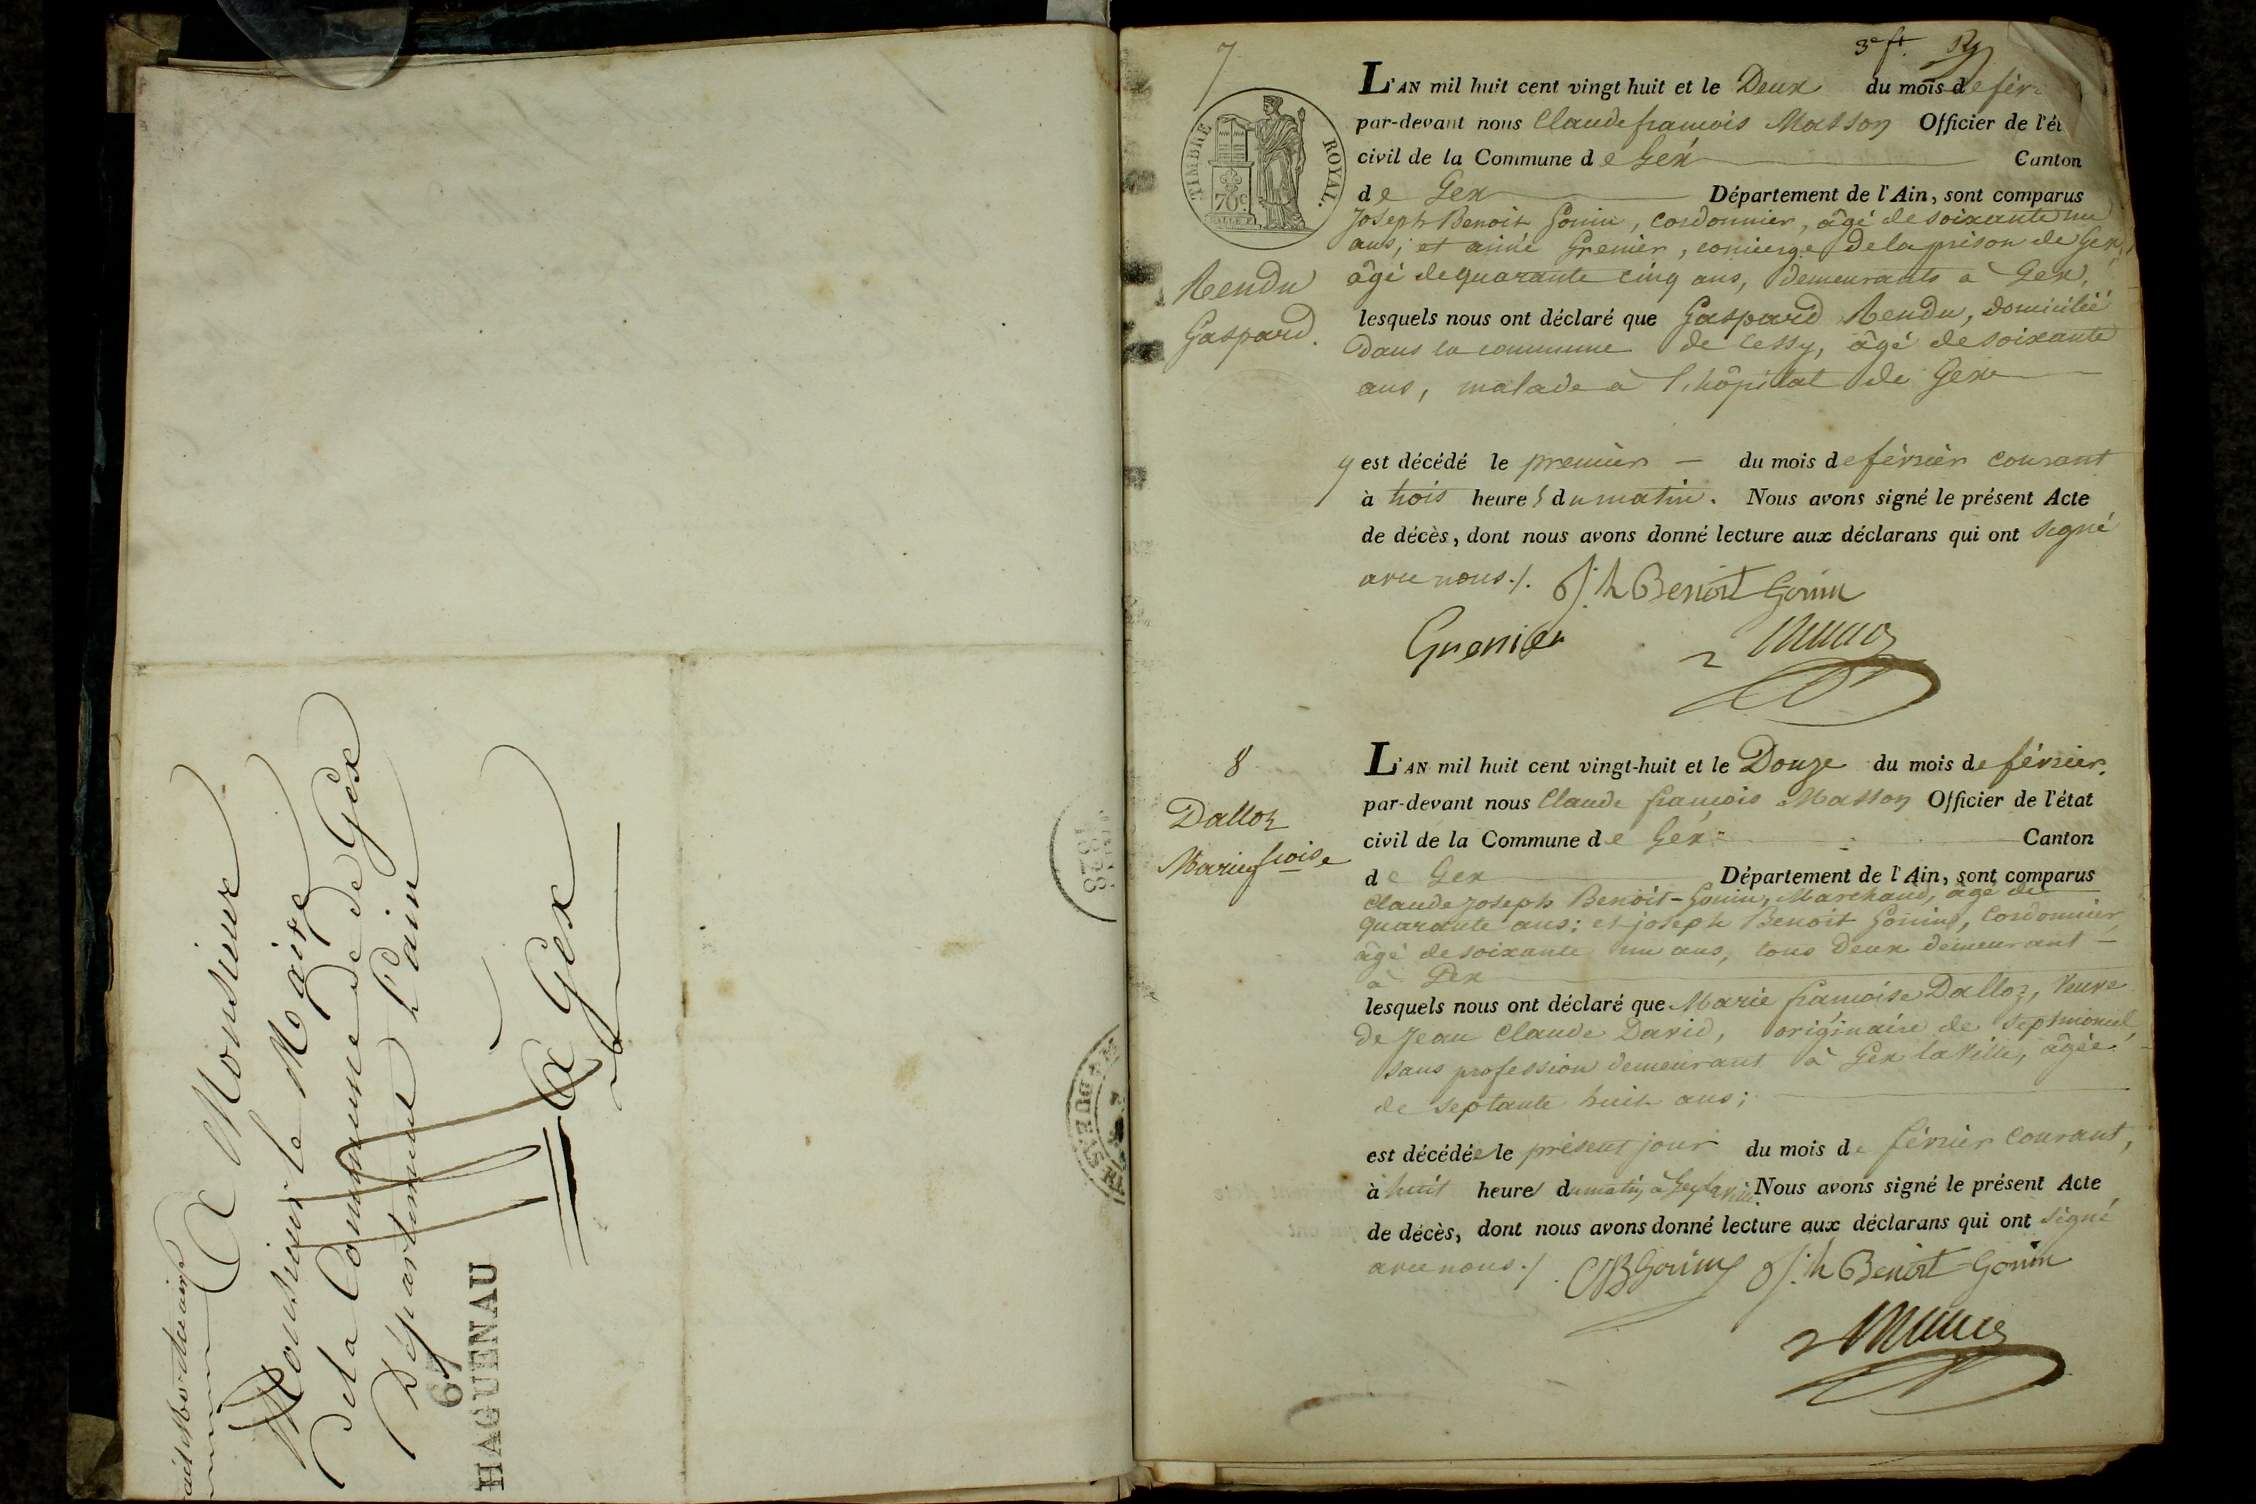 A Monsieur
Monsieur le Maire
de la Commune de de Gèx
Département L'ain
A Gex
67
HAGUENAU
1828
7
3e ft.
TIMBRE ROYAL.
70c
L'AN mil huit cent vingt huit et le Deux du mois de fév
par-devant nous Claude françois Masson Officier de l'ét
civil de la Commune de Gex Canton
de Gex Département de l'Ain, sont comparus
Joseph Benoit Gonin, cordonnier, âgé de soixante un
ans, et aimé Grenier, concierge de la prison de Gex,
âgé de quarante cinq ans, demeurants à Gex,
Rendu
Gaspard.
lesquels nous ont déclaré que Gaspard Rendu, domicilié
dans la commune de Cessy, âgé de soixante
ans, malade à l'hôpital de Gex
y est décédé le premier du mois de février courant
à trois heures du matin. Nous avons signé le présent Acte
de décès, dont nous avons donné lecture aux déclarans qui ont signé
avec nous ./. J.h Benoit Gonin
Grenier
8
Dalloz
Marie fcoise
L'AN mil huit cent vingt-huit et le Douze du mois de février,
par-devant nous Claude françois Masson Officier de l'état
civil de la Commune de Gex Canton
de Gex Département de l'Ain, sont comparus
Claude Joseph Benoit-Gonin, Marchand, âgé de
quarante ans; et joseph Benoit Gonin, Cordonnier
âgé de soixante un ans, tous deux demeurant
à Gex
lesquels nous ont déclaré que Marie françoise Dalloz, Veuve
de Jean Claude David, originaire de Septmoncel
sans profession demeurant à Gex la Ville, âgée
de septante huit ans;
est décédée le présent jour du mois de février courant,
à huit heures du matin, à Gex la ville Nous avons signé le présent Acte
de décès, dont nous avons donné lecture aux déclarans qui ont signé
avec nous ./. CJBGonin J.h Benoit Gonin